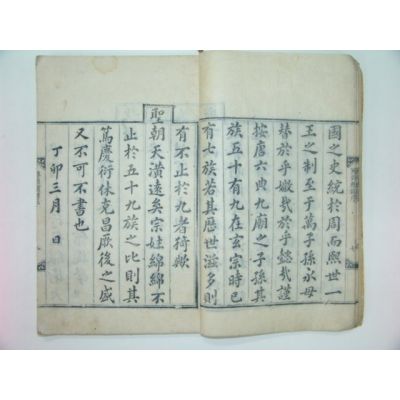 國之史統於周而熙世一
王之制至于萬子孫永毋
替於乎媺哉於乎懿哉謹
按唐六典九廟之子孫其
族五十有九在玄宗時已
有七族若其歷世滋多則
有不止於九者猗歟
聖朝天潢遠矣宗娃綿綿不
止於五十九族之比則其
篤慶衍休克昌厥後之盛
又不可不書也
丁卯三月 日